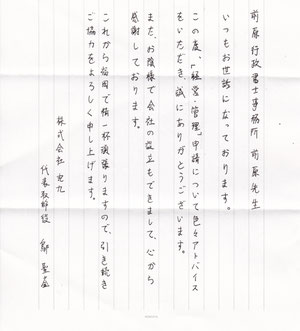 前原行政書士事務所 前原先生
いつもお世話になっております。
この度、「経営・管理」申請について色々アドバイス
をいただき、誠にありがとうございます。
また、お陰様で会社の設立もできまして、心から
感謝しております。
これから福岡で精一杯頑張りますので、引き続き
ご協力をよろしく申し上げます。
株式会社
代表取締役